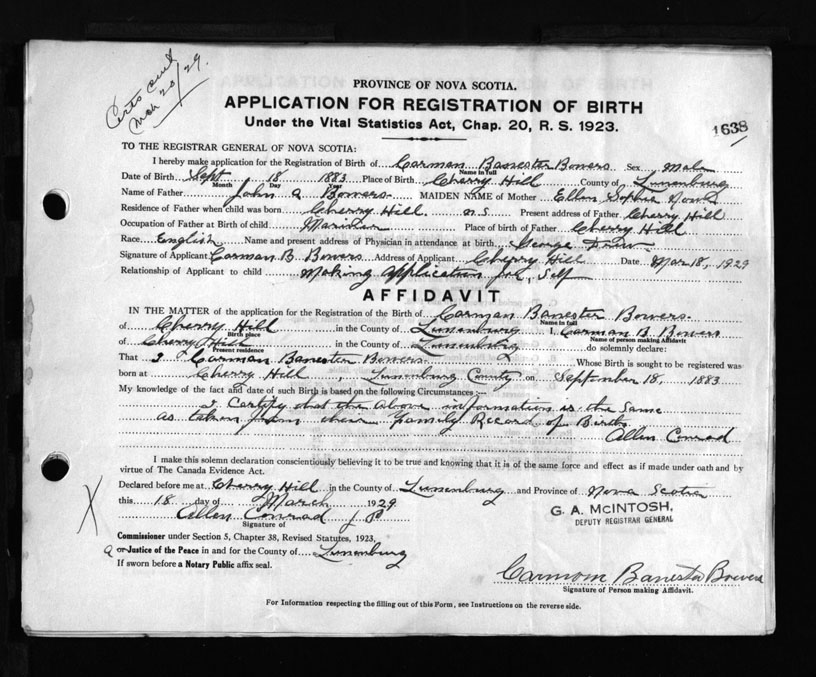 Certs cert
Mch 20/29.
PROVINCE OF NOVA SCOTIA.
APPLICATION FOR REGISTRATION OF BIRTH
Under the Vital Statistics Act, Chap. 20, R. S. 1923.
1638
TO THE REGISTRAR GENERAL OF NOVA SCOTIA:
I hereby make application for the Registration of Birth of Carman Banester Bowers Sex Male
Name in full
Date of Birth Sept 18 1883 Place of Birth Cherry Hill County of Lunenburg
Month Day Year
Name of Father John A Bowers MAIDEN NAME of Mother Ellen Sophia
Residence of Father when child was born Cherry Hill. N S Present address of Father Cherry Hill
Occupation of Father at Birth of child Mariner Place of birth of Father Cherry Hill
Race English Name and present address of Physician in attendance at birth George
Signature of Applicant Carman B. Bowers Address of Applicant Cherry Hill Date Mar 18, 1929
Relationship of Applicant to child Making Application for Self
AFFIDAVIT
IN THE MATTER of the application for the Registration of the Birth of Carman Banester Bowers.
Name in full
of Cherry Hill in the County of Lunenburg I, Carman B Bowers
Birth place Name of person making Affidavit
of Cherry Hill in the County of Lunenburg do solemnly declare:
Present residence
That I Carman Banester Bowers Whose Birth is sought to be registered was
born at Cherry Hill, Lunenburg County on September 18, 1883
My knowledge of the fact and date of such Birth is based on the following Circumstances:—
I Certify that the above information is the Same
as taken from their Family Record of Births
Allen Conrad
I make this solemn declaration conscientiously believing it to be true and knowing that it is of the same force and effect as if made under oath and by
virtue of The Canada Evidence Act.
Declared before me at Cherry Hill in the County of Lunenburg and Province of Nova Scotia
this 18 day of March 1929
G. A. McINTOSH,
DEPUTY REGISTRAR GENERAL
X
Allen Conrad J P
Signature of
Commissioner under Section 5, Chapter 38, Revised Statutes, 1923,
or Justice of the Peace in and for the County of Lunenburg
If sworn before a Notary Public affix seal.
Carmom Banester Bowers
Signature of Person making Affidavit.
For Information respecting the filling out of this Form, see Instructions on the reverse side.